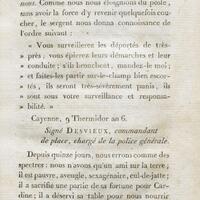 nous. Comme nous nous éloignions du poste,
sans avoir la force d'y revenir quelquefois cou-
cher, le sergent nous donna connoissance de
l'ordre suivant :
« Vous surveillerez les déportés de très-
» près ; vous épierez leurs démarches et leur
» conduite ; s'ils bronchent, mandez-le moi ;
» et faites-les partir sur-le-champ bien escor-
» tés, ils seront très-sévèrement punis, ils
» sont sous votre surveillance et responsa-
» bilité. »
Cayenne, 9 Thermidor an 6.
Signé DESVIEUX, commandant
de place, chargé de la police générale.
Depuis quinze jours, nous errons comme des
spectres : nous n'avons qu'un ami sur la terre ;
il est pauvre, aveugle, sexagénaire, cul-de-jatte ;
il a sacrifié une partie de sa fortune pour Car-
dine ; il a désservi sa table pour nous nourrir